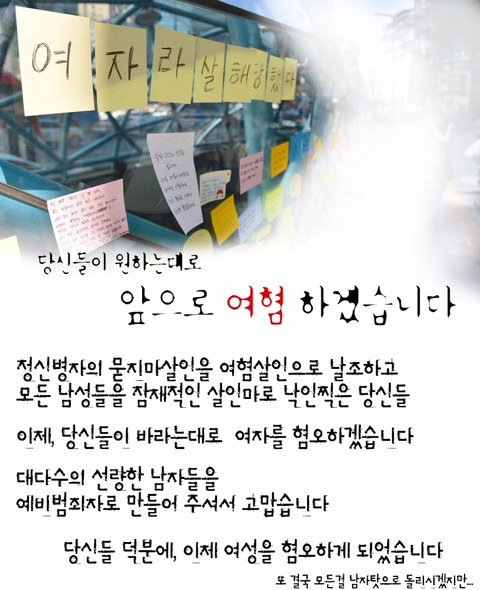 여자라살해당했다
당신들이 원하는대로
앞으로 여혐 하겠습니다
정신병자의 묻지마살인을 여혐살인으로 날조하고
모든 남성들을 잠재적인 살인마로 낙인찍은 당신들
이제, 당신들이 바라는대로 여자를 혐오하겠습니다
대다수의 선량한 남자들을
예비범죄자로 만들어 주셔서 고맙습니다
당신들 덕분에, 이제 여성을 혐오하게 되었습니다
또 결국 모든걸 남자탓으로 돌리시겠지만...